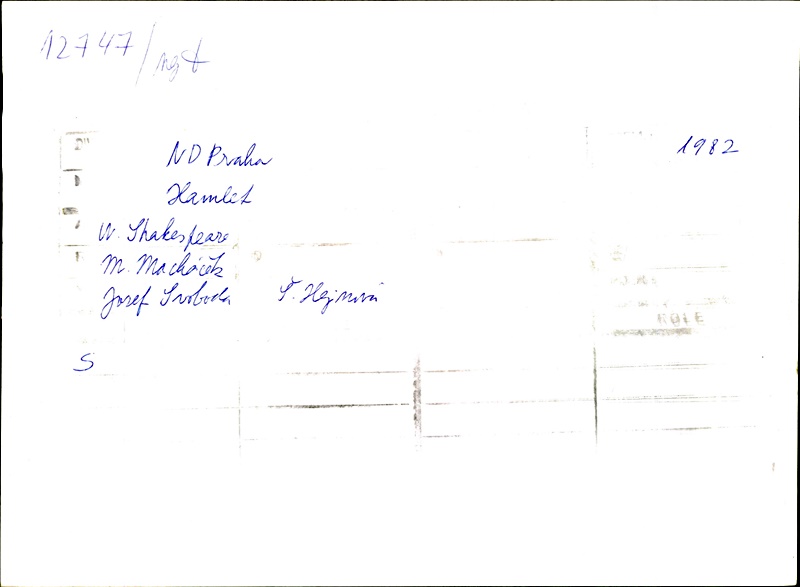 12747/neg
ND Praha 1982
Hamlet
W. Shakespeare
M. Macháček
Josef Svoboda Š. Hejnová
S
ROLE